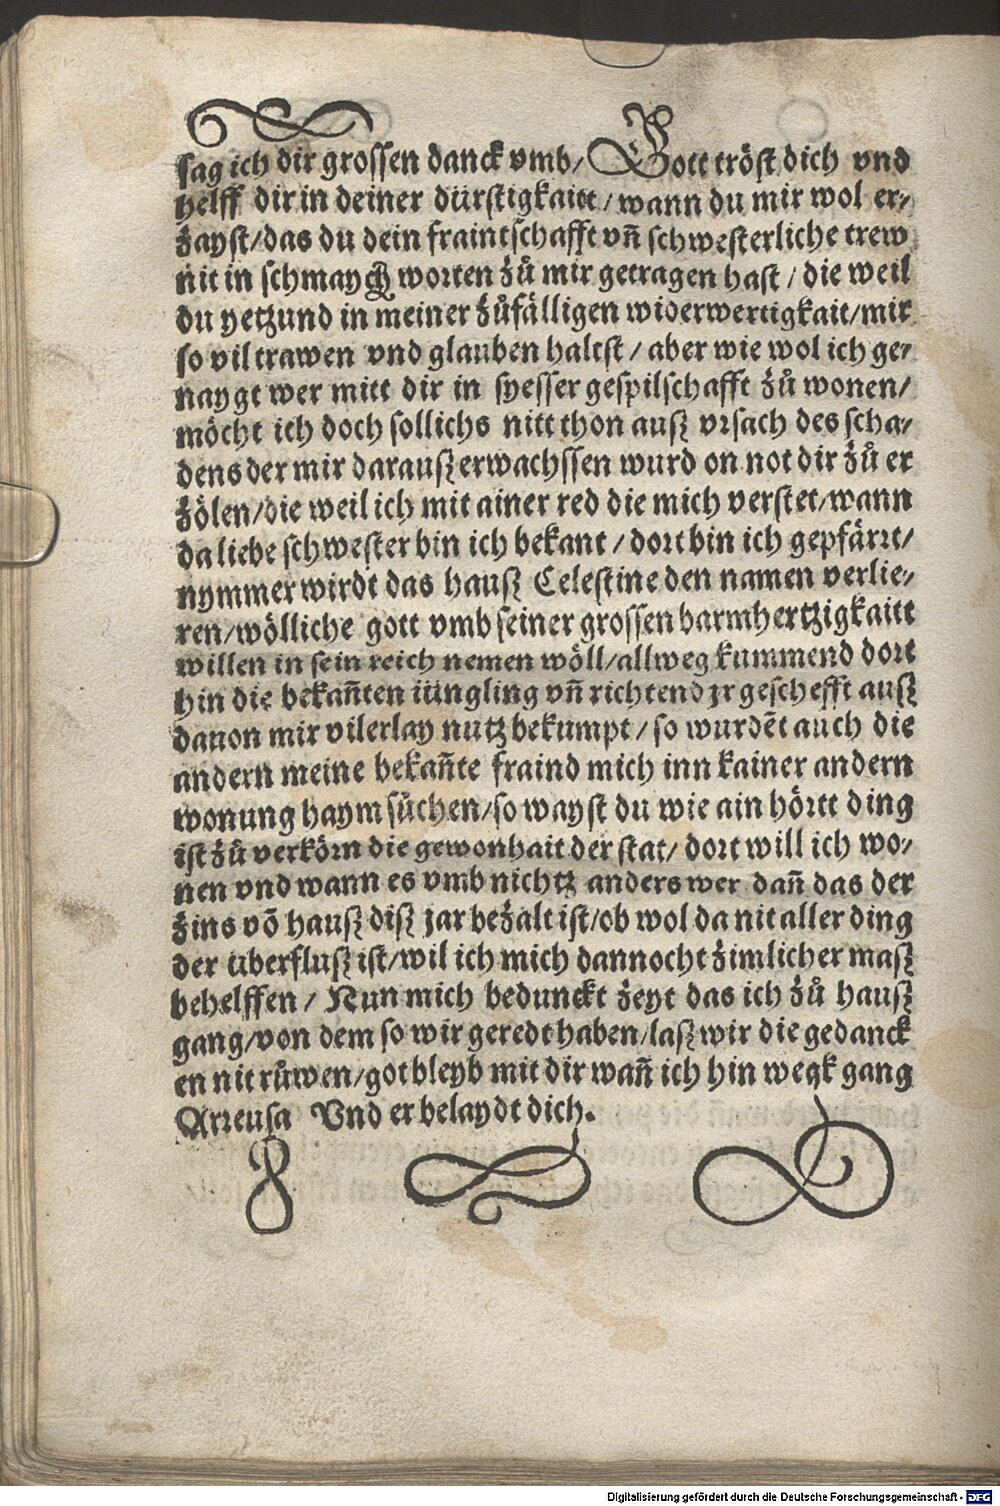 sag ich dir grossen danck vmb/ Gott tröst dich vnd
helff dir in deiner dürstigkaitt/wann du mir wol er/
zayst/das du dein fraintschafft vn̄ schwesterliche trew
nit in schmaych worten zů mir getragen hast/die weil
du yetzund in meiner zůfälligen widerwertigkait/mir
so vil trawen vnd glauben haltst/aber wie wol ich ge/
naygt wer mitt dir in syesser gespilschafft zů wonen/
möcht ich doch sollichs nitt thon ausz vrsach des scha/
dens der mir darausz erwachssen wurd on not dir zů er
zölen/die weil ich mit ainer red die mich verstet/wann
da liebe schwester bin ich bekant/dort bin ich gepfärrt/
nymmer wirdt das hausz Celestine den namen verlie/
ren/wölliche gott vmb seiner grossen barmhertzigkaitt
willen in sein reich nemen wöll/allweg kummend dort
hin die bekan̄ten iüngling vn̄ richtend jr geschefft ausz
dauon mir vilerlay nutz bekumpt/so wurdēt auch die
andern meine bekan̄te fraind mich inn kainer andern
wonung haym sůchen/so wayst du wie ain hörtt ding
ist zů verkörn die gewonhait der stat/dort will ich wo/
nen vnd wann es vmb nichtz anders wer dan̄ das der
zins vō hausz disz jar bezalt ist/ob wol da nit aller ding
der überflusz ist/wil ich mich dannocht zimlicher masz
behelffen/Nun mich bedunckt zeyt das ich zů hausz
gang/von dem so wir geredt haben/lasz wir die gedanck
en nit růwen/got bleyb mit dir wan̄ ich hin wegk gang
Arreusa Vnd er belaydt dich.
Digitalisierung gefördert durch die Deutsche Forschungsgemeinschaft - DFG